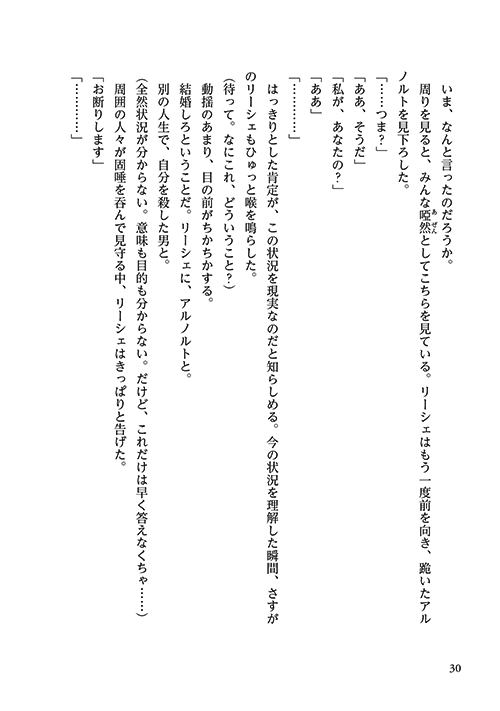 いま、なんと言ったのだろうか。
周りを見ると、みんな啞然としてこちらを見ている。リーシェはもう一度前を向き、跪いたアル
ノルトを見下ろした。
「……つま？」
「ああ、そうだ」
「私が、あなたの？」
「ああ」
「…………」
はっきりとした肯定が、この状況を現実なのだと知らしめる。今の状況を理解した瞬間、さすが
のリーシェもひゅっと喉を鳴らした。
（待って。なにこれ、どういうこと？）
動揺のあまり、目の前がちかちかする。
結婚しろということだ。リーシェに、アルノルトと。
別の人生で、自分を殺した男と。
（全然状況が分からない。意味も目的も分からない。だけど、これだけは早く答えなくちゃ……）
周囲の人々が固唾を吞んで見守る中、リーシェはきっぱりと告げた。
「お断りします」
「…………」
30